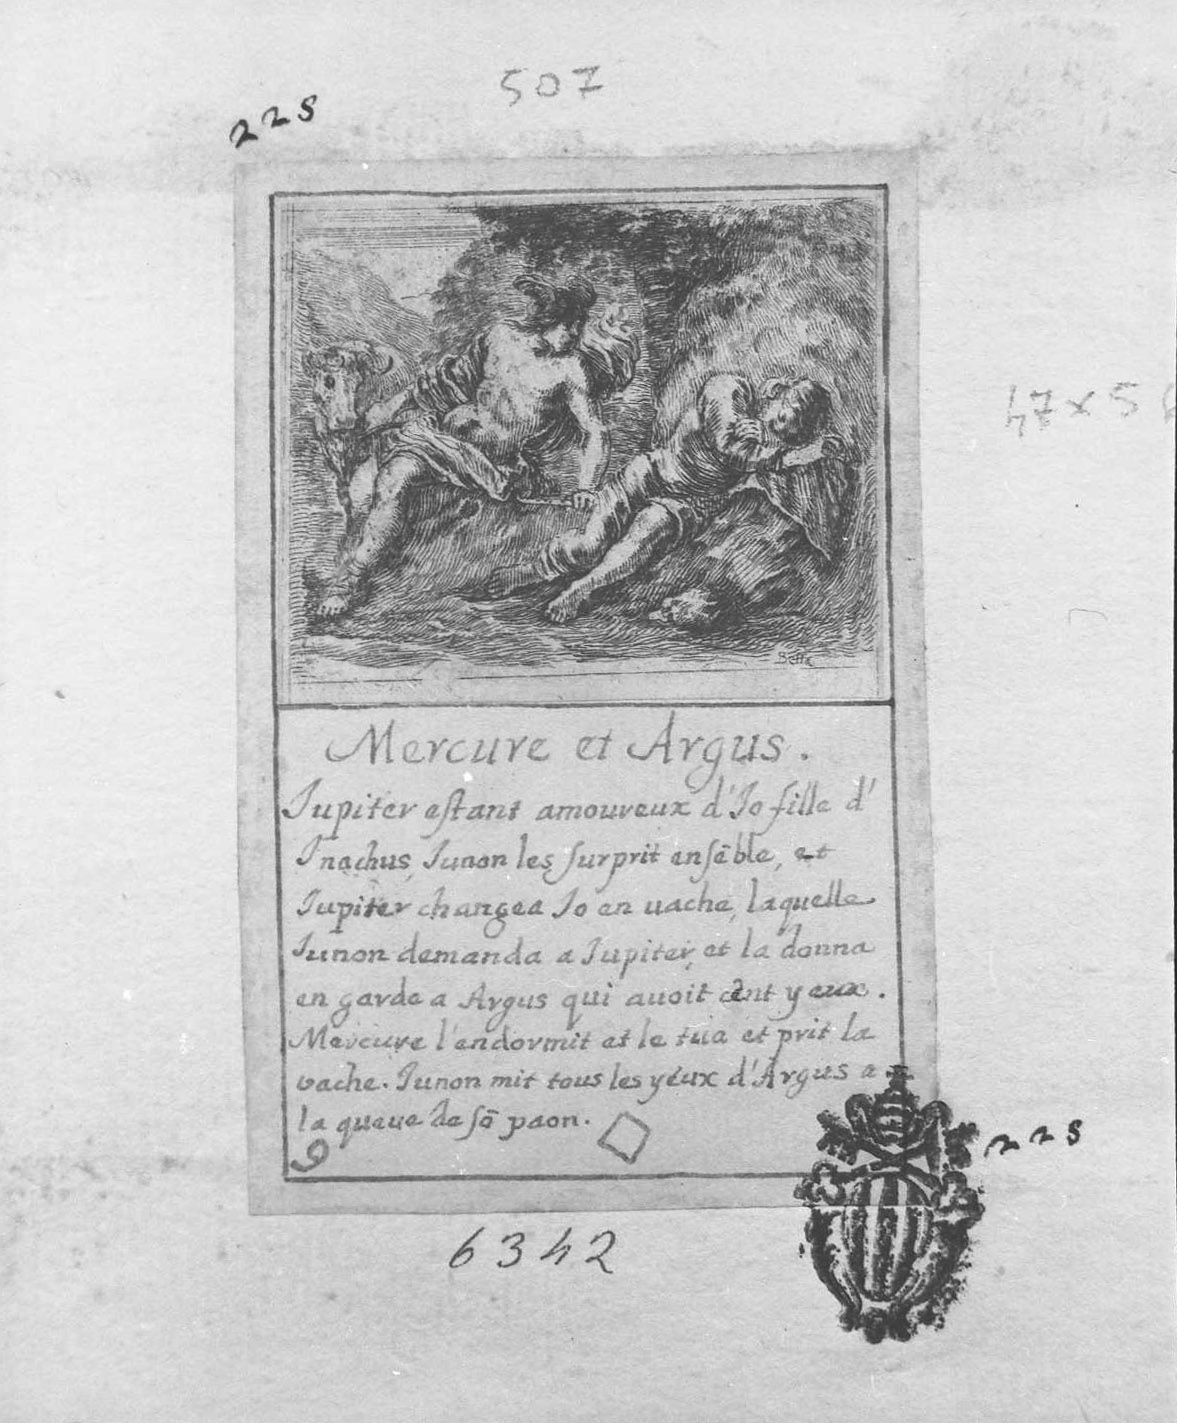 507
225
47x5
Bella
Mercure et Argus.
Jupiter estant amoureux d'Jo fille d'
Jnachus, Junon les surprit ensẽble, et
Jupiter changea Jo en uache, laquelle
Junon demanda a Jupiter, et la donna
en garde a Argus qui auoit cent yeux.
Mercure l'endormit et le tua et prit la
vache. Junon mit tous les yeux d'Argus a
la queue de sõ paon.
9
225
6342